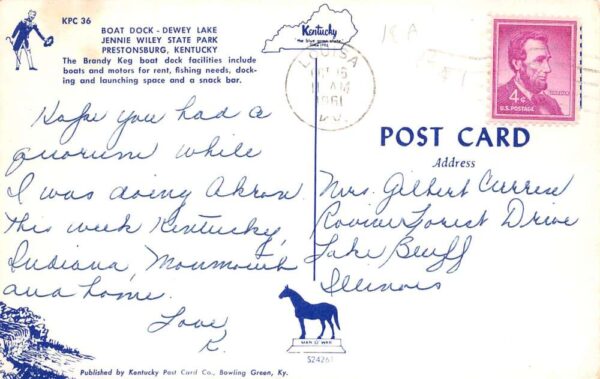 KPC 36
BOAT DOCK - DEWEY LAKE
JENNIE WILEY STATE PARK
PRESTONSBURG, KENTUCKY
The Brandy Keg boat dock facilities include
boats and motors for rent, fishing needs, dock-
ing and launching space and a snack bar.
Kentucky
the blue grass state
LOUISA
OCT 16
11 AM
1961
KY.
4¢
U.S. POSTAGE
POST CARD
Address
Hope you had a
quorum while
I was doing Akron.
This week Kentucky,
Indiana, Monmouth
and home.
Love
K.
Mrs. Gilbert Curren
Forest Drive
Lake Bluff
Illinois
MAN O WAR
S24261
Published by Kentucky Post Card Co., Bowling Green, Ky.